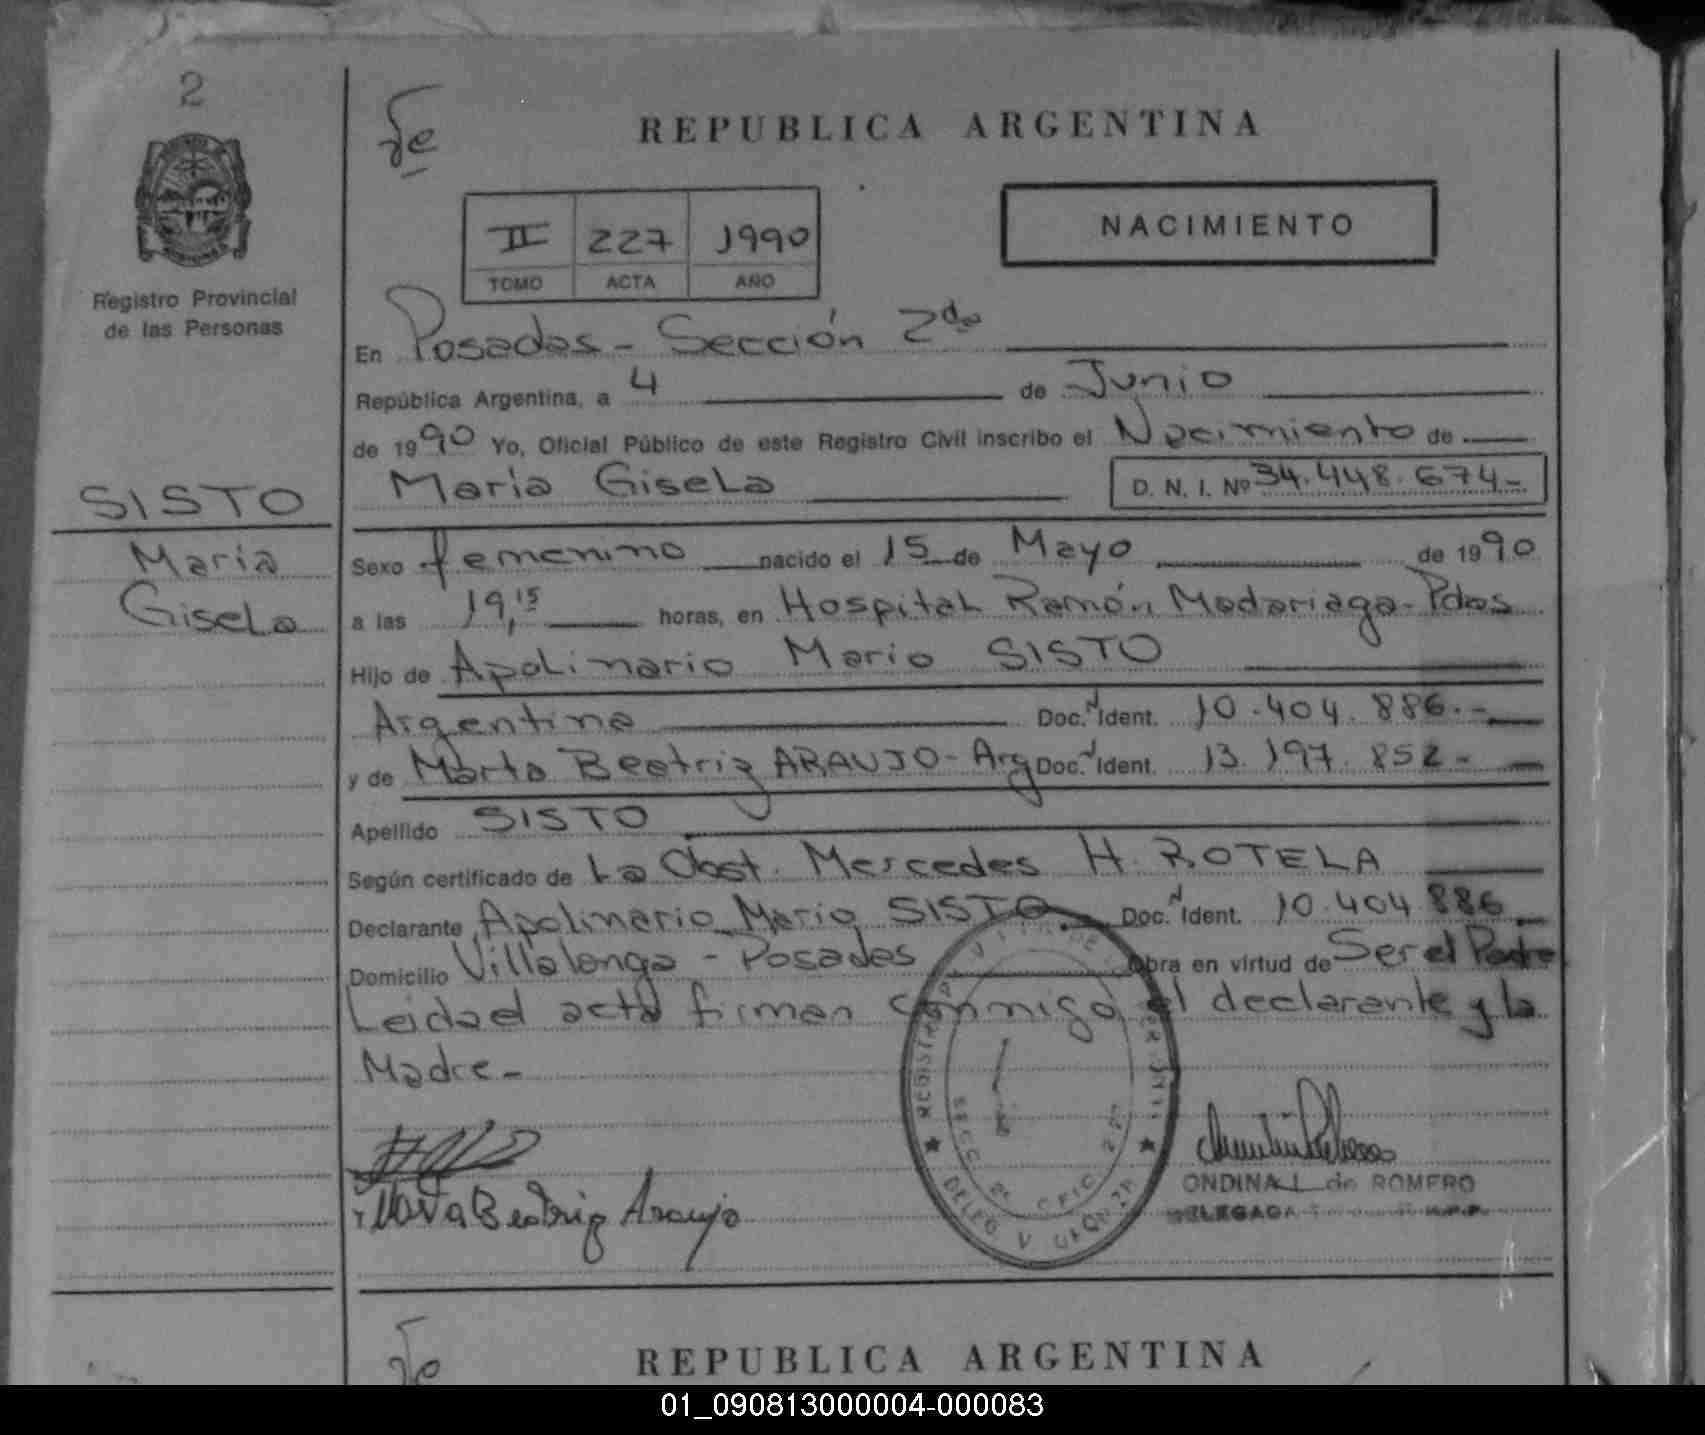 2
Registro Provincial
de las Personas
SISTO
María
Gisela
REPUBLICA ARGENTINA
NACIMIENTO
II 227 1990
TOMO ACTA AÑO
En Posadas - Sección 2da
República Argentina, a 4 de Junio
de 1990 Yo, Oficial Público de este Registro Civil inscribo el Nacimiento de
María Gisela D. N. I. Nº 34.448.674-
Sexo femenino nacido el 15 de Mayo de 1990
a las 19,15 horas, en Hospital Ramón Madariaga - Pdas
Hijo de Apolinario Mario SISTO
Argentina Doc. N Ident. 10.404.886.-
y de Marta Beatriz ARAUJO - Arg Doc. N Ident. 13.197.852-
Apellido SISTO
Según certificado de La Obst. Mercedes H. ROTELA
Declarante Apolinario Mario SISTO Doc. N Ident. 10.404.886
Domicilio Villalonga - Posadas Obra en virtud de Ser el Padre
Leidad acta firman conmigo el declarante y la
Madre -
Marta Beatriz Araujo
ONDINA L. de ROMERO
DELEGADA
REPUBLICA ARGENTINA
01_090813000004-000083